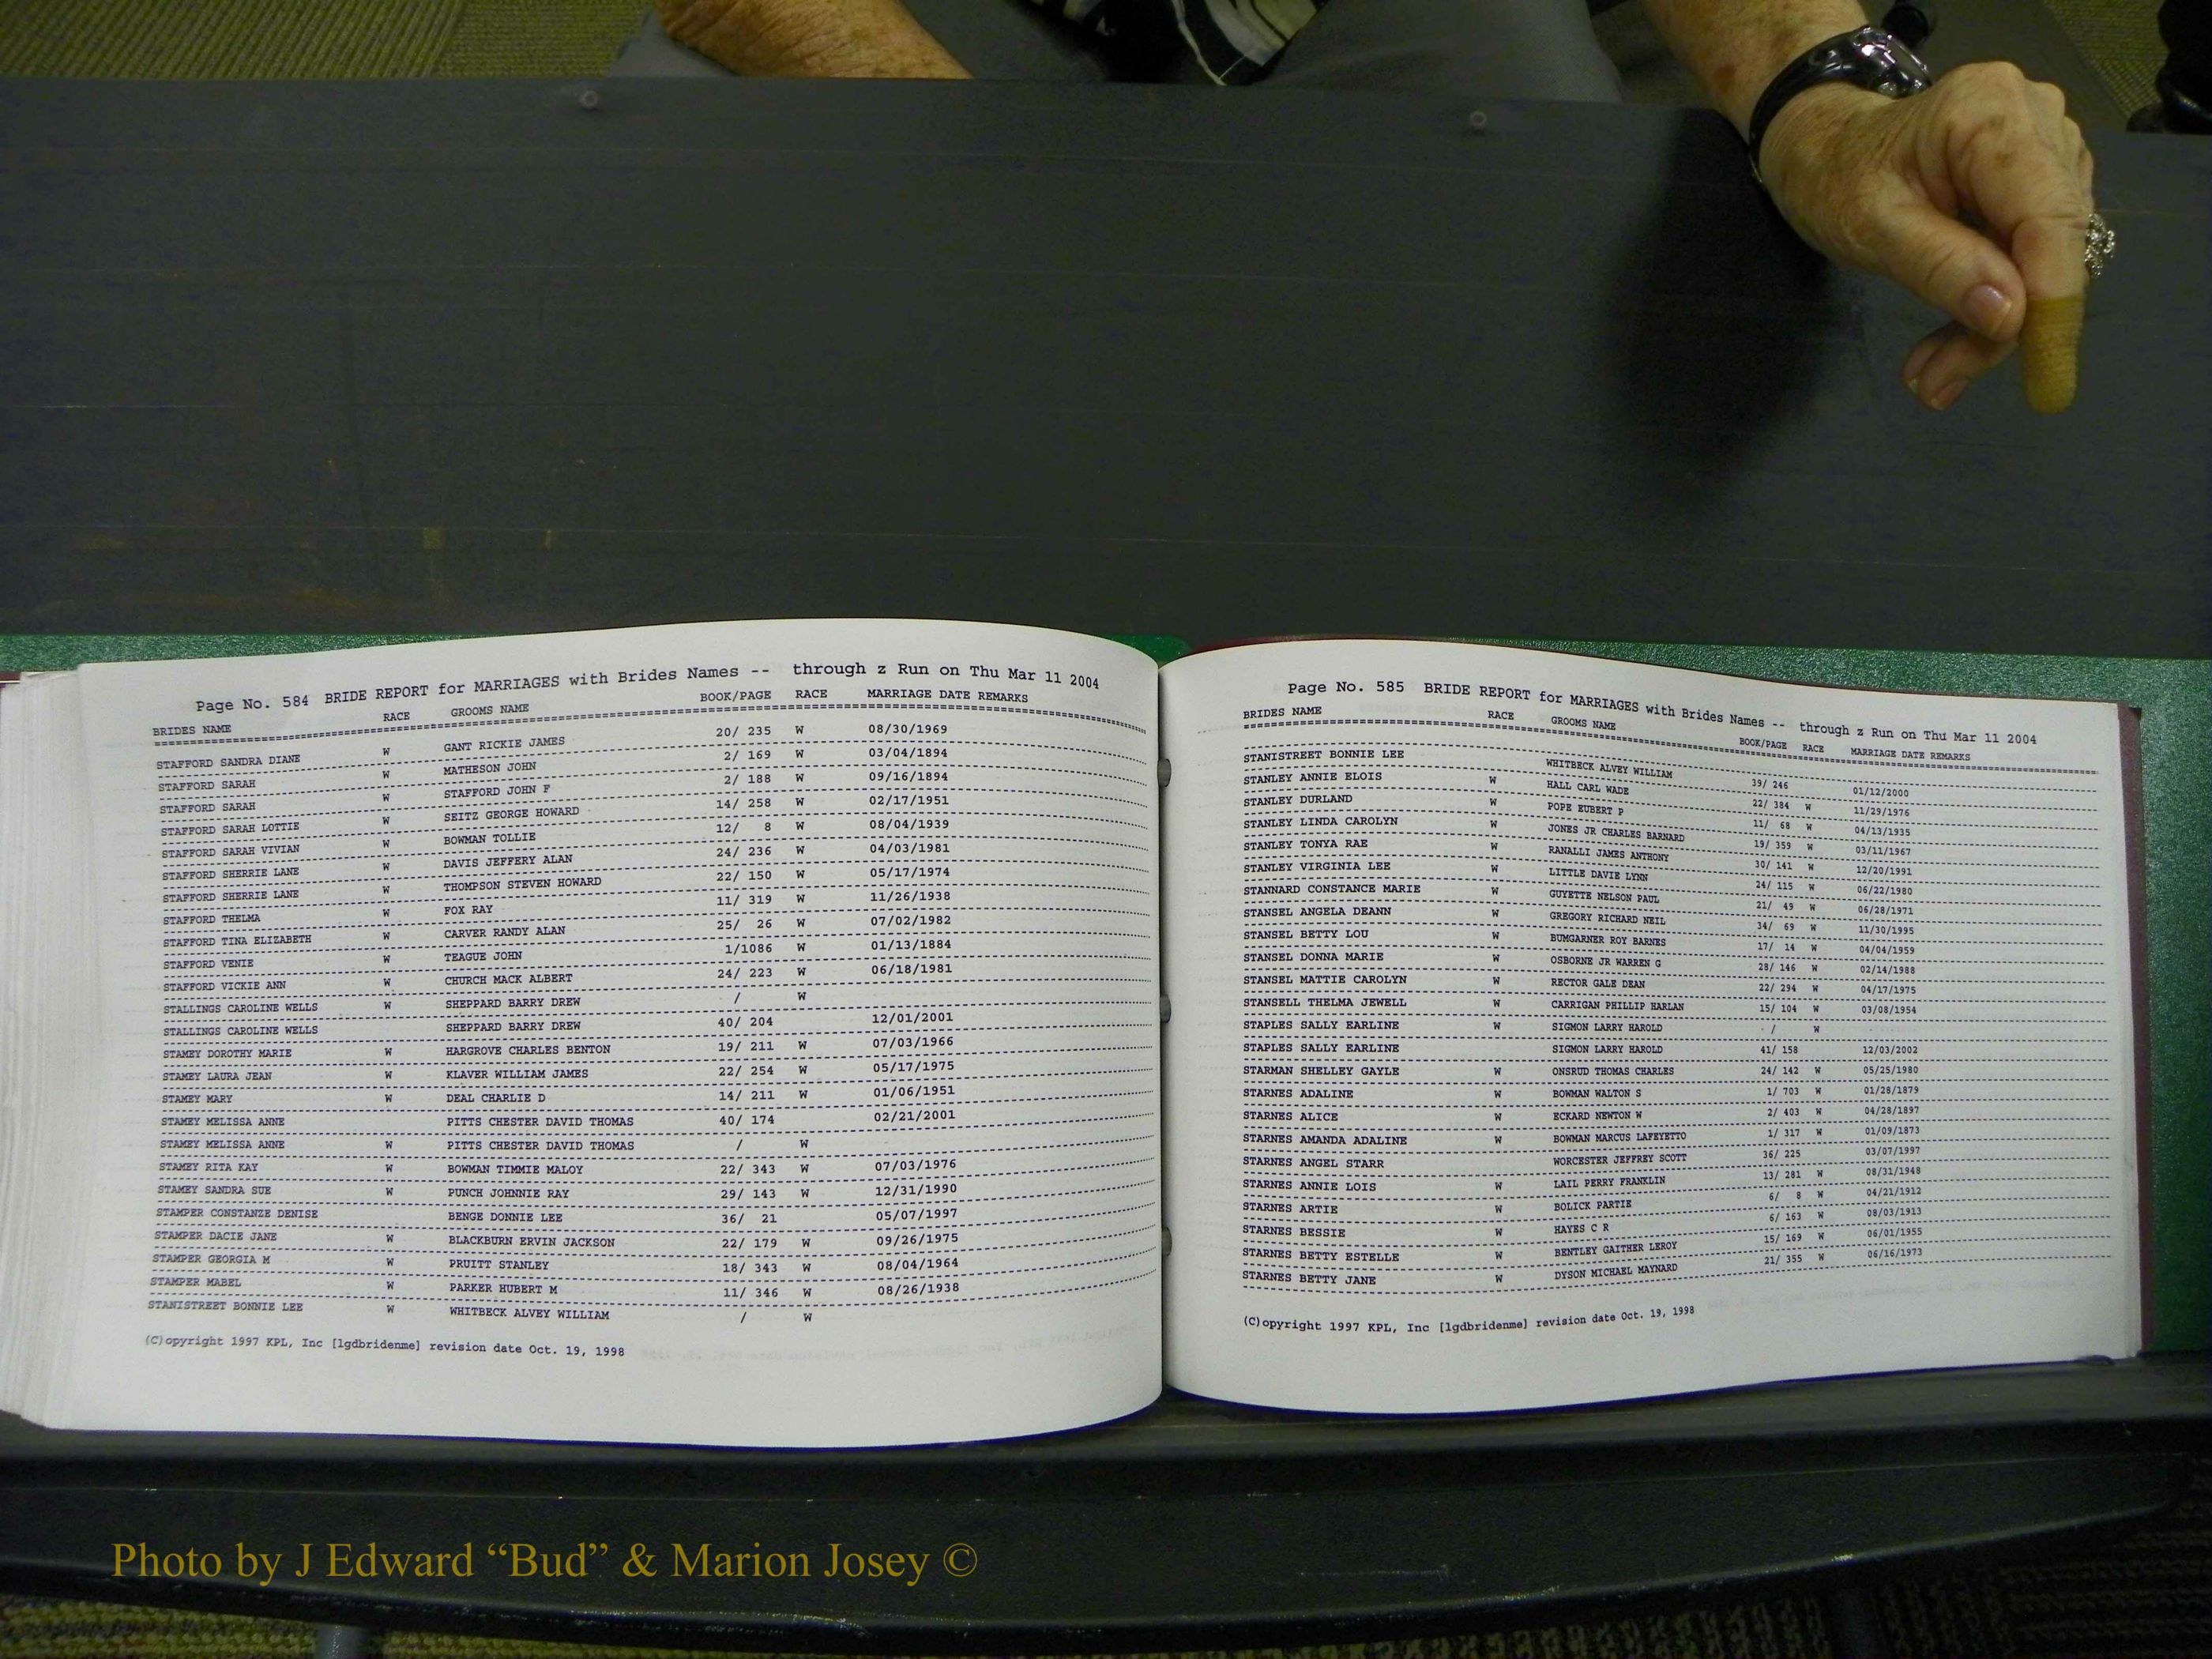 Page No. 584 BRIDE REPORT for MARRIAGES with Brides Names -- through z Run on Thu Mar 11 2004
BRIDES NAME RACE GROOMS NAME BOOK/PAGE RACE MARRIAGE DATE REMARKS
STAFFORD SANDRA DIANE W GANT RICKIE JAMES 20/ 235 W 08/30/1969
STAFFORD SARAH W MATHESON JOHN 2/ 169 W 03/04/1894
STAFFORD SARAH W STAFFORD JOHN F 2/ 188 W 09/16/1894
STAFFORD SARAH LOTTIE W SEITZ GEORGE HOWARD 14/ 258 W 02/17/1951
STAFFORD SARAH VIVIAN W BOWMAN TOLLIE 12/ 8 W 08/04/1939
STAFFORD SHERRIE LANE W DAVIS JEFFERY ALAN 24/ 236 W 04/03/1981
STAFFORD SHERRIE LANE W THOMPSON STEVEN HOWARD 22/ 150 W 05/17/1974
STAFFORD THELMA W FOX RAY 11/ 319 W 11/26/1938
STAFFORD TINA ELIZABETH W CARVER RANDY ALAN 25/ 26 W 07/02/1982
STAFFORD VENIE W TEAGUE JOHN 1/1086 W 01/13/1884
STAFFORD VICKIE ANN W CHURCH MACK ALBERT 24/ 223 W 06/18/1981
STALLINGS CAROLINE WELLS W SHEPPARD BARRY DREW / W
STALLINGS CAROLINE WELLS SHEPPARD BARRY DREW 40/ 204 12/01/2001
STAMEY DOROTHY MARIE W HARGROVE CHARLES BENTON 19/ 211 W 07/03/1966
STAMEY LAURA JEAN W KLAVER WILLIAM JAMES 22/ 254 W 05/17/1975
STAMEY MARY W DEAL CHARLIE D 14/ 211 W 01/06/1951
STAMEY MELISSA ANNE PITTS CHESTER DAVID THOMAS 40/ 174 02/21/2001
STAMEY MELISSA ANNE W PITTS CHESTER DAVID THOMAS / W
STAMEY RITA KAY W BOWMAN TIMMIE MALOY 22/ 343 W 07/03/1976
STAMEY SANDRA SUE W PUNCH JOHNNIE RAY 29/ 143 W 12/31/1990
STAMPER CONSTANZE DENISE BENGE DONNIE LEE 36/ 21 05/07/1997
STAMPER DACIE JANE W BLACKBURN ERVIN JACKSON 22/ 179 W 09/26/1975
STAMPER GEORGIA M W PRUITT STANLEY 18/ 343 W 08/04/1964
STAMPER MABEL W PARKER HUBERT M 11/ 346 W 08/26/1938
STANISTREET BONNIE LEE W WHITBECK ALVEY WILLIAM / W
(C)opyright 1997 KPL, Inc [lgdbridenme] revision date Oct. 19, 1998
Page No. 585 BRIDE REPORT for MARRIAGES with Brides Names -- through z Run on Thu Mar 11 2004
BRIDES NAME RACE GROOMS NAME BOOK/PAGE RACE MARRIAGE DATE REMARKS
STANISTREET BONNIE LEE WHITBECK ALVEY WILLIAM 39/ 246 01/12/2000
STANLEY ANNIE ELOIS W HALL CARL WADE 22/ 384 W 11/29/1976
STANLEY DURLAND W POPE EUBERT P 11/ 68 W 04/13/1935
STANLEY LINDA CAROLYN W JONES JR CHARLES BARNARD 19/ 359 W 03/11/1967
STANLEY TONYA RAE W RANALLI JAMES ANTHONY 30/ 141 W 12/20/1991
STANLEY VIRGINIA LEE W LITTLE DAVIE LYNN 24/ 115 W 06/22/1980
STANNARD CONSTANCE MARIE W GUYETTE NELSON PAUL 21/ 49 W 06/28/1971
STANSEL ANGELA DEANN W GREGORY RICHARD NEIL 34/ 69 W 11/30/1995
STANSEL BETTY LOU W BUMGARNER ROY BARNES 17/ 14 W 04/04/1959
STANSEL DONNA MARIE W OSBORNE JR WARREN G 28/ 146 W 02/14/1988
STANSEL MATTIE CAROLYN W RECTOR GALE DEAN 22/ 294 W 04/17/1975
STANSELL THELMA JEWELL W CARRIGAN PHILLIP HARLAN 15/ 104 W 03/08/1954
STAPLES SALLY EARLINE W SIGMON LARRY HAROLD / W
STAPLES SALLY EARLINE SIGMON LARRY HAROLD 41/ 158 12/03/2002
STARMAN SHELLEY GAYLE W ONSRUD THOMAS CHARLES 24/ 142 W 05/25/1980
STARNES ADALINE W BOWMAN WALTON S 1/ 703 W 01/28/1879
STARNES ALICE W ECKARD NEWTON W 2/ 403 W 04/28/1897
STARNES AMANDA ADALINE W BOWMAN MARCUS LAFEYETTO 1/ 317 W 01/09/1873
STARNES ANGEL STARR WORCESTER JEFFREY SCOTT 36/ 225 03/07/1997
STARNES ANNIE LOIS W LAIL PERRY FRANKLIN 13/ 281 W 08/31/1948
STARNES ARTIE W BOLICK PARTIE 6/ 8 W 04/21/1912
STARNES BESSIE W HAYES C R 6/ 163 W 08/03/1913
STARNES BETTY ESTELLE W BENTLEY GAITHER LEROY 15/ 169 W 06/01/1955
STARNES BETTY JANE W DYSON MICHAEL MAYNARD 21/ 355 W 06/16/1973
(C)opyright 1997 KPL, Inc [lgdbridenme] revision date Oct. 19, 1998
Photo by J Edward “Bud” & Marion Josey ©